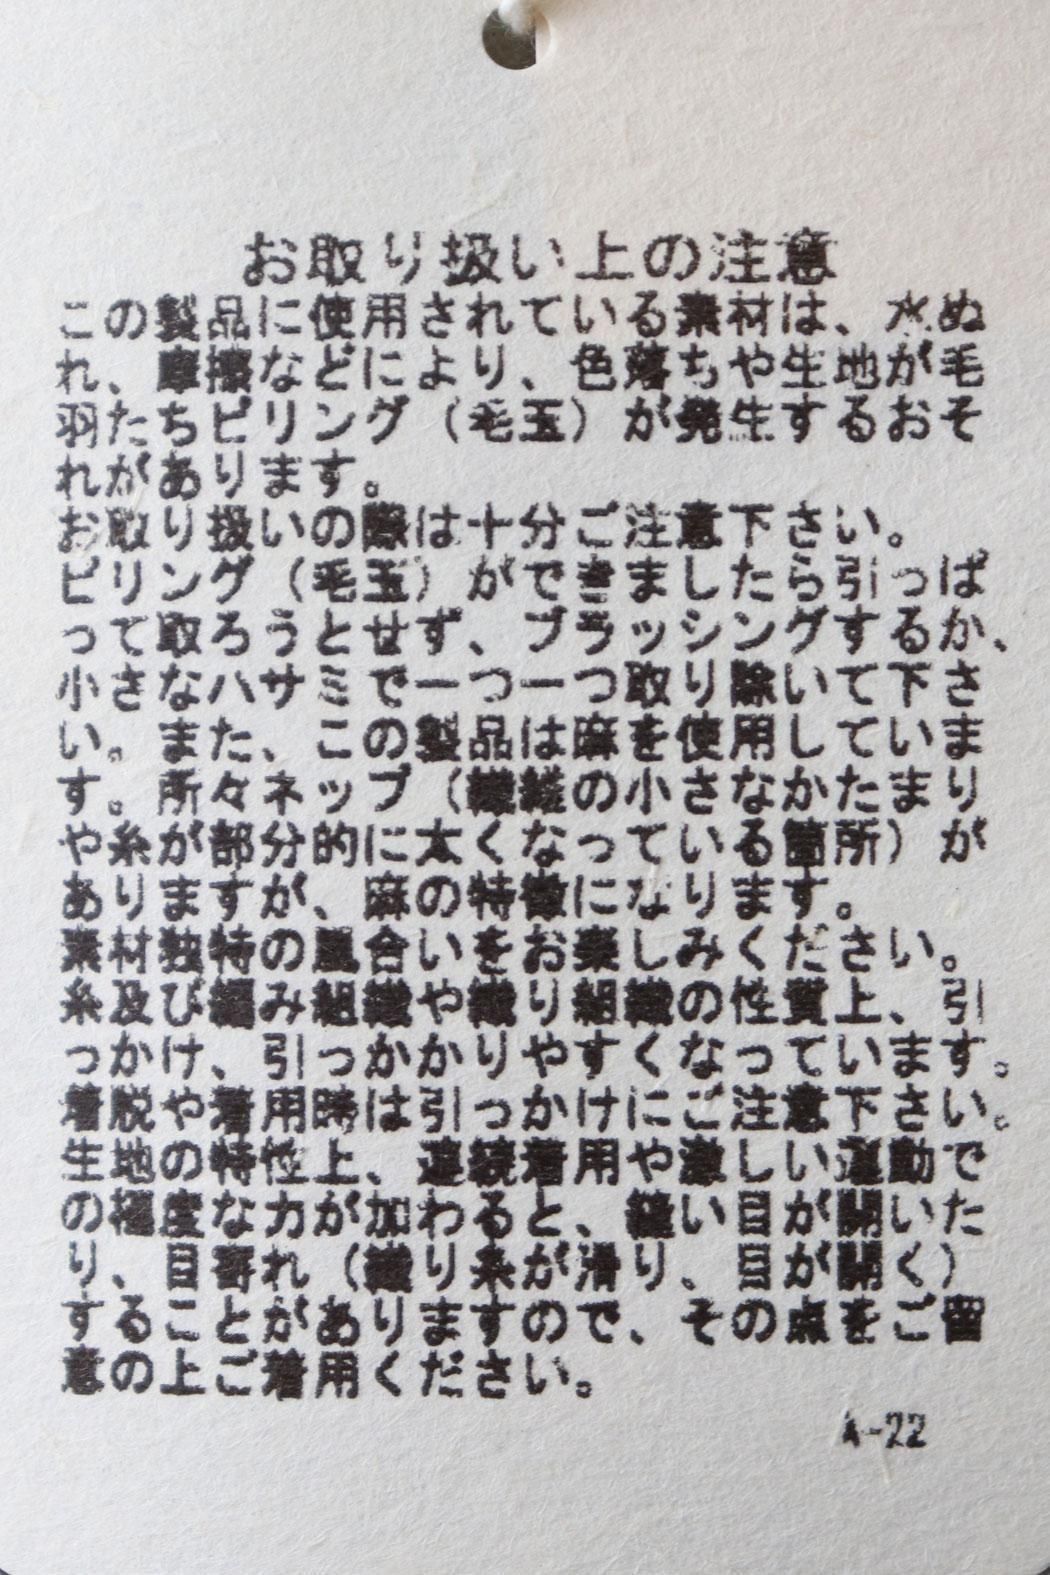 お取り扱い上の注意
この製品に使用されている素材は、水ぬ
れ、摩擦などにより、色落ちや生地が毛
羽たちピリング（毛玉）が発生するおそ
れがあります。
お取り扱いの際は十分ご注意下さい。
ピリング（毛玉）ができましたら引っぱ
って取ろうとせず、ブラッシングするか、
小さなハサミで一つ一つ取り除いて下さ
い。また、この製品は麻を使用していま
す。所々ネップ（繊維の小さなかたまり
や糸が部分的に太くなっている箇所）が
ありますが、麻の特徴になります。
素材独特の風合いをお楽しみください。
糸及び編み組織や織り組織の性質上、引
っかけ、引っかかりやすくなっています。
着脱や着用時は引っかけにご注意下さい。
生地の特性上、連続着用や激しい運動で
の極度な力が加わると、縫い目が開いた
り、目寄れ（織り糸が滑り、目が開く）
することがありますので、その点をご留
意の上ご着用ください。
A-22